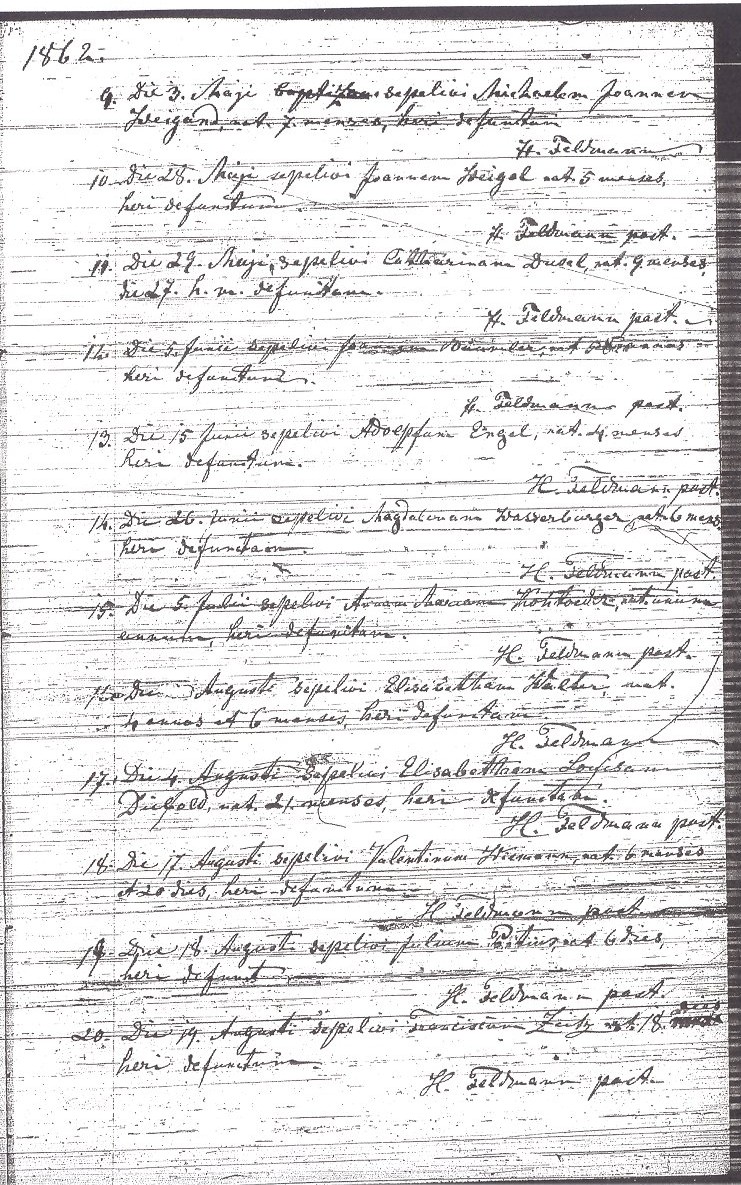 1862.
9. Die 3. Maji baptizav sepelivi Michaelem Joannem
Weigand, nat. 7 menses, heri defunctum
H. Feldmann
10. Die 28. Maji sepelivi Joannem Weigel nat. 5 menses,
heri defunctum
H. Feldmann past.
11. Die 29. Maji, sepelivi Catharinam Dusel, nat. 9 menses,
die 27. h. m. defunctam.
H. Feldmann past.
12. Die 5. Junii sepelivi Joannem nat.
heri defunctum.
H. Feldmann past.
13. Die 15 Junii sepelivi Adolpfum Engel, nat. 4 menses
heri defunctum.
H. Feldmann past.
14. Die 26. Junii sepelivi Magdalenam Wasserburger nat. 6 mens.
heri defunctam.
H. Feldmann past.
15. Die 5. Julii sepelivi Annam Mariam nat. unum
annum, heri defunctam.
H. Feldmann past.
16. Die Augusti sepelivi Elisabetham Walter, nat.
4 annos et 6 menses, heri defunctam
H. Feldmann
17. Die 4. Augusti sepelivi Elisabetham Loisam
Diebold, nat. 21 menses, heri defunctam.
H. Feldmann past.
18. Die 17. Augusti sepelivi Valentinum Wiemann, nat. 6 menses
et 20 dies, heri defunctum
H. Feldmann past.
19. Die 18 Augusti sepelivi nat. 6 dies,
heri defunct
H. Feldmann past.
20. Die 19. Augusti sepelivi Franciscum Zeitz nat. 18. dies
heri defunctum.
H. Feldmann past.